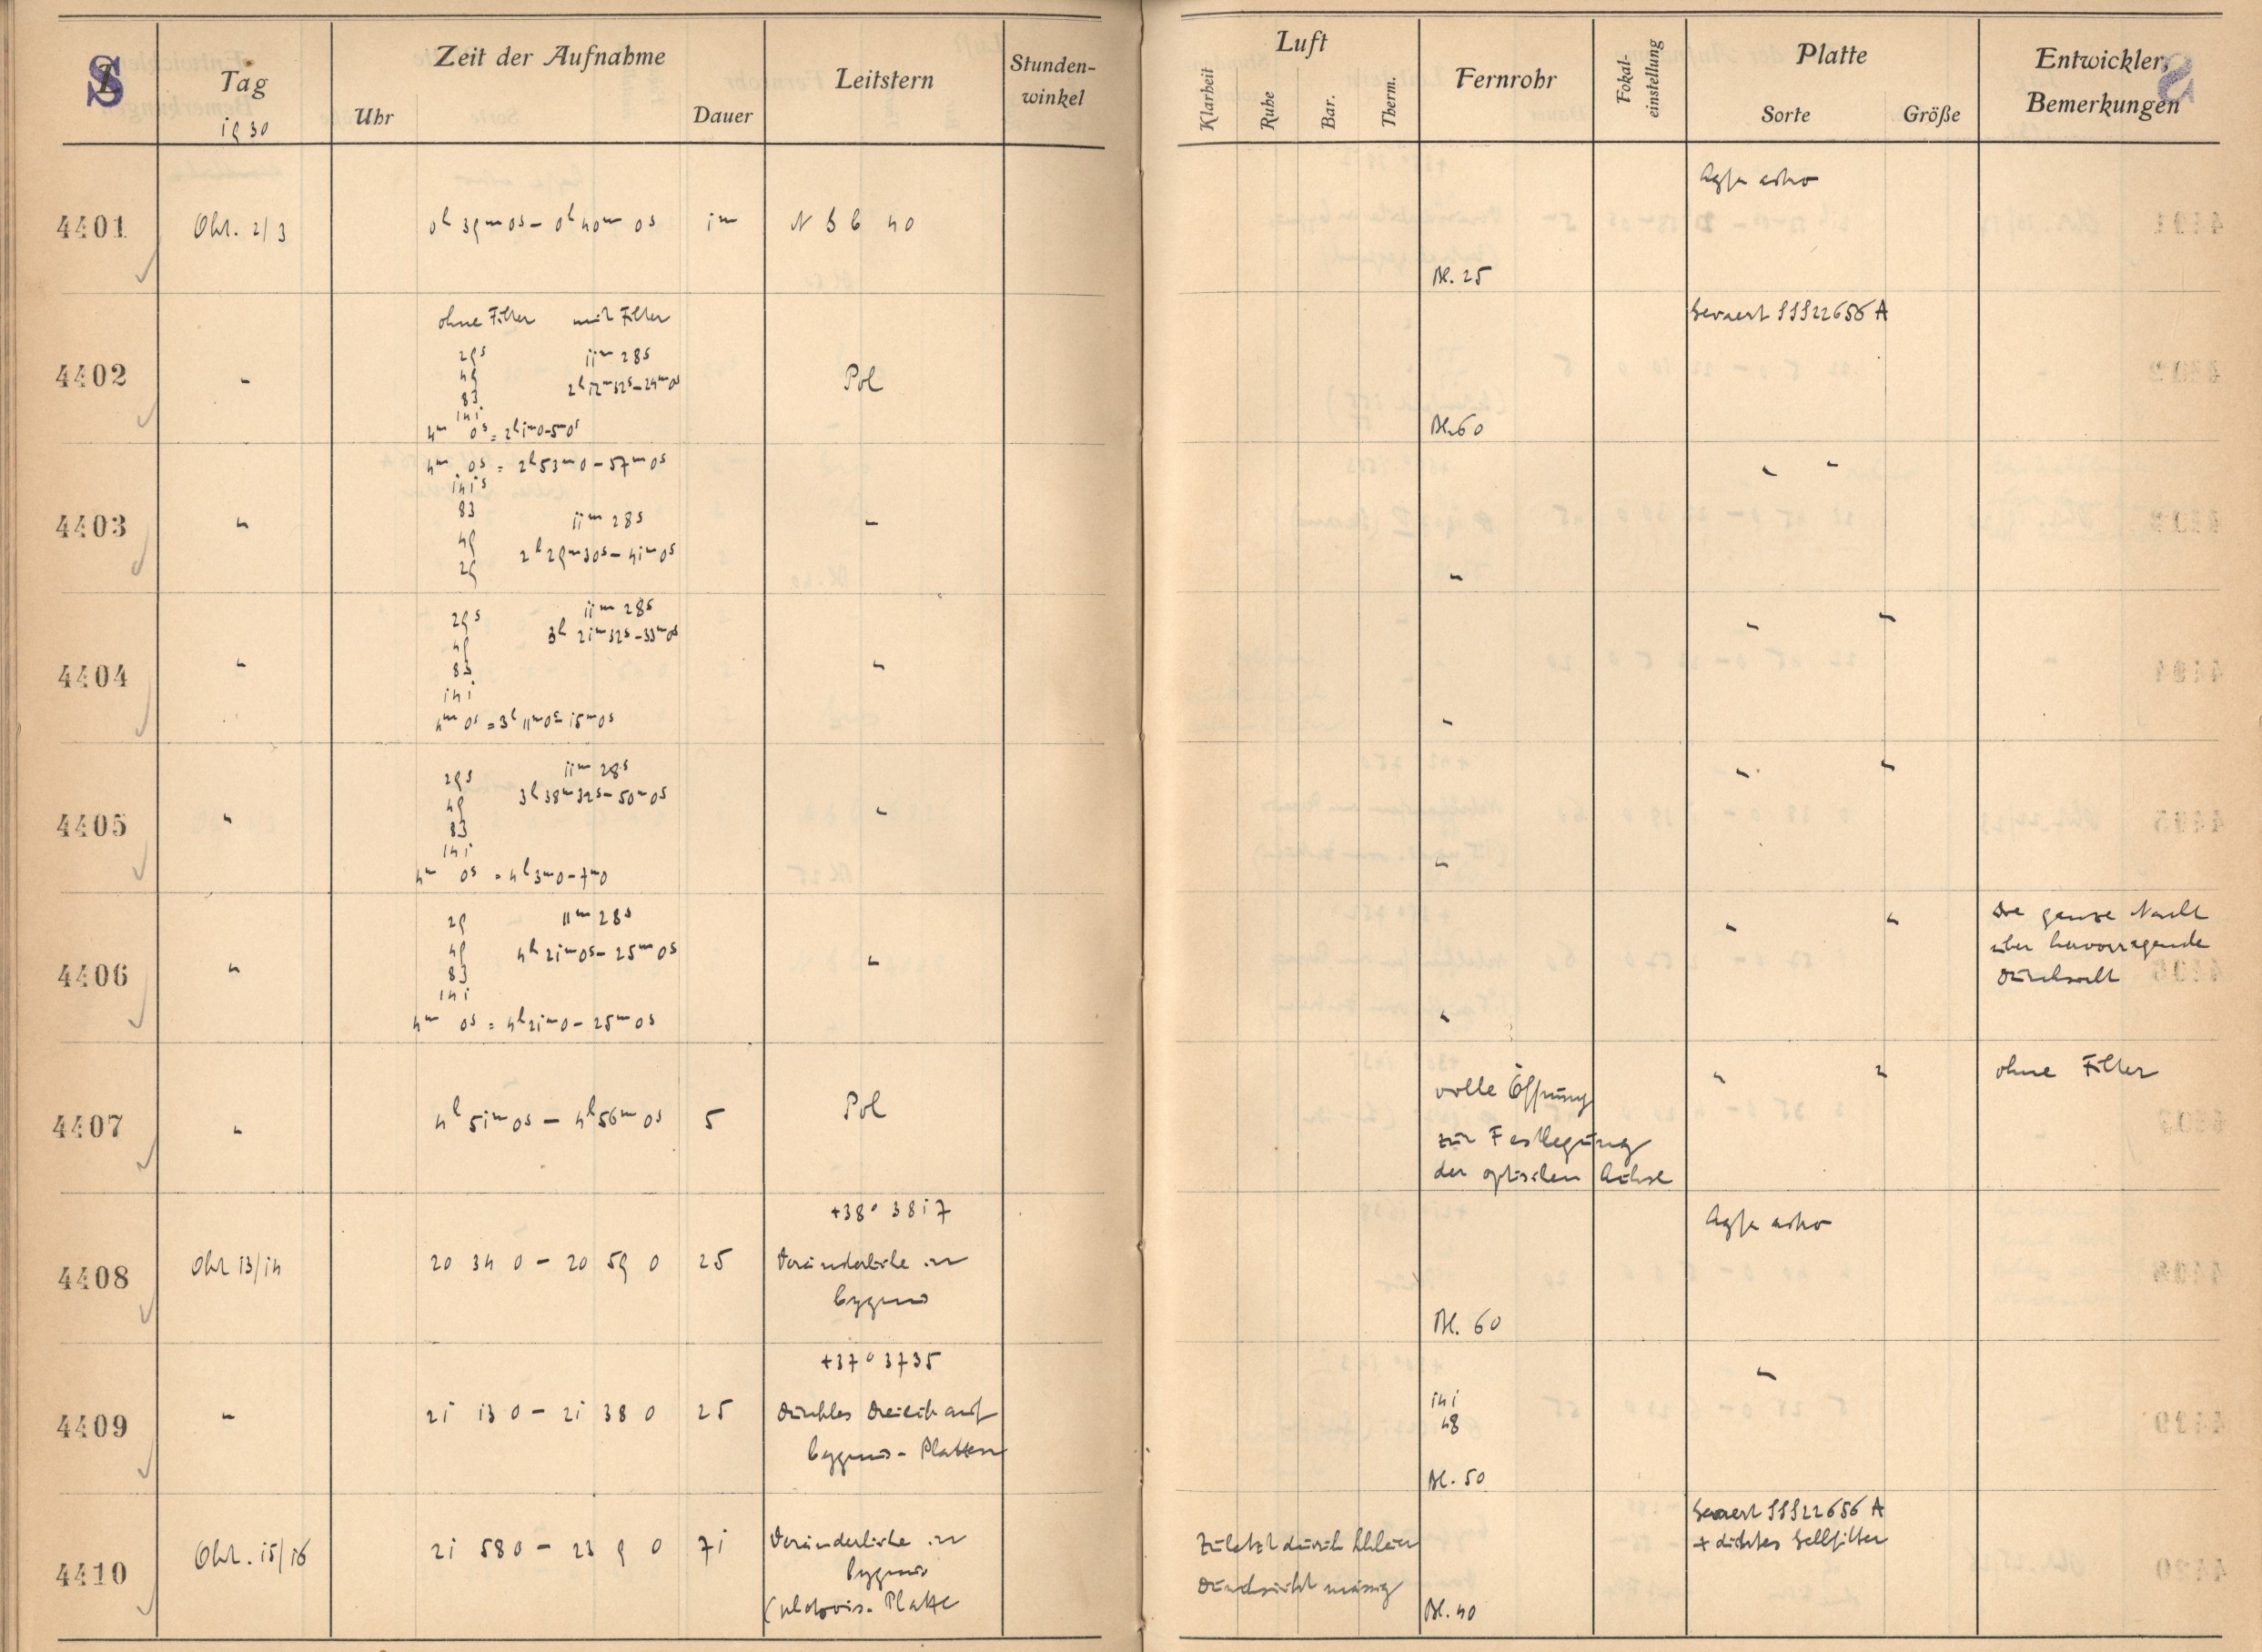 S
Tag
1930
Zeit der Aufnahme
Uhr
Dauer
Leitstern
Stunden-
winkel
Luft
Klarheit
Ruhe
Bar.
Therm.
Fernrohr
Fokal-
einstellung
Platte
Sorte
Größe
Entwickler,
Bemerkungen
4401
Okt. 2/3
0h 39m 0s – 0h 40m 0s
1m
40
Bl. 25
Agfa astro
4402
"
ohne Filter mit Filter
29s 11m 28s
49 2h 12m 32s – 24m 0s
83
141
4m 0s = 2h 1m 0 – 5m 0s
Pol
Bl. 60
Gevaert SSS 22656 A
4403
"
4m 0s = 2h 53m 0 – 57m 0s
141s
83
11m 28s
49
2h 29m 30s – 41m 0s
29
"
"
" "
4404
"
29s 11m 28s
3h 21m 32s – 33m 0s
49
83
141
4m 0s = 3h 11m 0s – 15m 0s
"
"
" "
4405
"
29s 11m 28s
49 3h 38m 32s – 50m 0s
83
141
4m 0s = 4h 3m 0 – 7m 0
"
"
" "
4406
"
29 11m 28s
49 4h 21m 0s – 25m 0s
83
141
4m 0s = 4h 21m 0 – 25m 0s
"
"
" "
Die ganze Nacht
über hervorragende
Durchsicht
4407
"
4h 51m 0s – 4h 56m 0s
5
Pol
volle Öffnung
zur Festlegung
der optischen Achse
" "
ohne Filter
4408
Okt 13/14
20 34 0 – 20 59 0
25
+38° 3817
Veränderliche in
Cygnus
Bl. 60
Agfa astro
4409
"
21 13 0 – 21 38 0
25
+37° 3735
Dunkles Dreieck auf
Cygnus-Platten
141
48
Bl. 50
"
4410
Okt. 15/16
21 58 0 – 23 9 0
71
Veränderliche in
Cygnus
(photovis. Platte
Zuletzt durch
Durchsicht mässig
Bl. 40
Gevaert SSS 22656 A
+ dichtes Gelbfilter